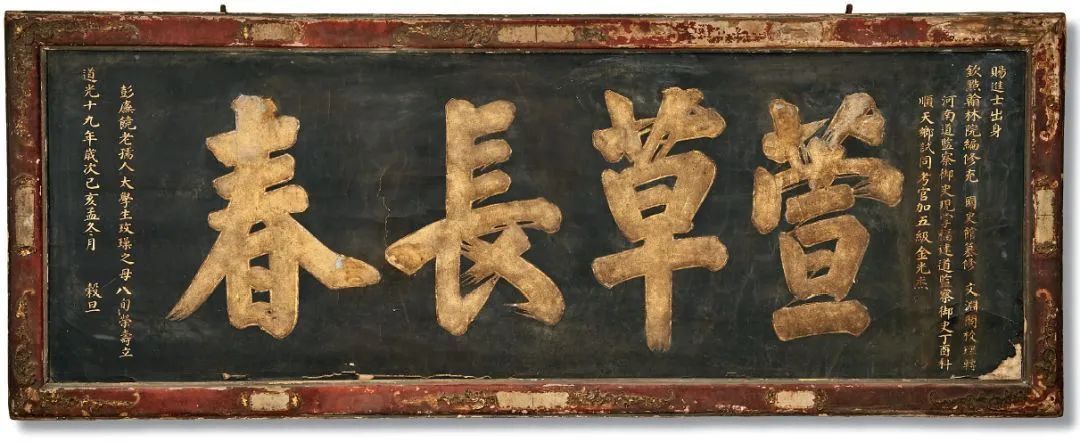 賜進士出身
欽點翰林院編修充 國史館纂修 文淵閣校理轉
河南道監察御史現掌福建道監察御史丁酉科
順天鄉試同考官加五級金光杰
萱草長春
彭廉饒老孺人大學生玟璪之母八旬榮壽立
道光十九年歲次己亥孟冬月 穀旦